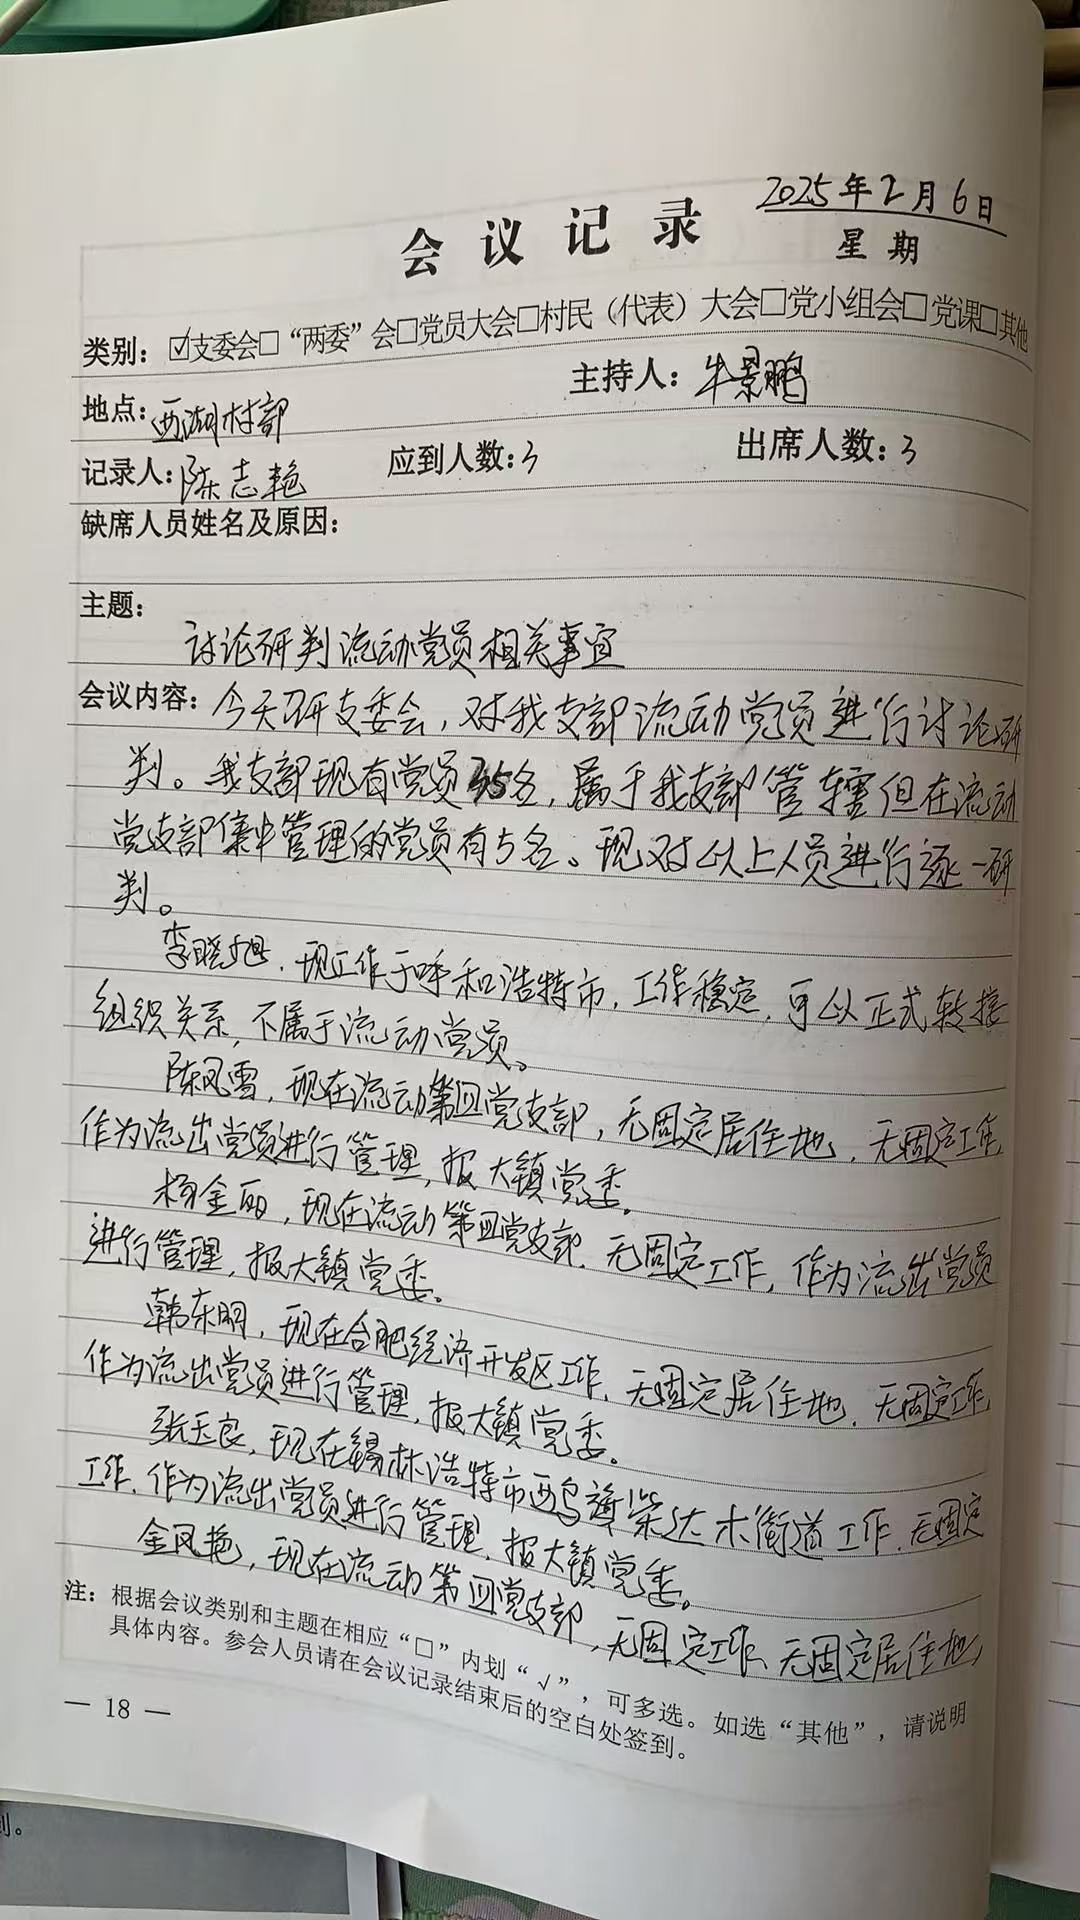 2025年2月6日
会议记录
星期
类别：☑支委会□“两委”会□党员大会□村民（代表）大会□党小组会□党课□其他
地点：西湖村部 主持人：牛景鹏
记录人：陈志艳 应到人数：3 出席人数：3
缺席人员姓名及原因：
主题：
讨论研判流动党员相关事宜
会议内容：今天召开支委会，对我支部流动党员进行讨论研
判。我支部现有党员35名，属于我支部管辖但在流动
党支部集中管理的党员有5名。现对以上人员进行逐一研
判。
李晓旭，现工作于呼和浩特市，工作稳定，可以正式转接
组织关系，不属于流动党员。
陈凤雪，现在流动第四党支部，无固定居住地，无固定工作，
作为流出党员进行管理，报大镇党委。
杨金丽，现在流动第四党支部，无固定工作，作为流出党员
进行管理，报大镇党委。
韩东明，现在合肥经济开发区工作，无固定居住地，无固定工作，
作为流出党员进行管理，报大镇党委。
张玉良，现在锡林浩特市西乌旗柴达木街道工作，无固定
工作，作为流出党员进行管理，报大镇党委。
金凤艳，现在流动第四党支部，无固定工作、无固定居住地，
注：根据会议类别和主题在相应“□”内划“√”，可多选。如选“其他”，请说明
具体内容。参会人员请在会议记录结束后的空白处签到。
— 18 —